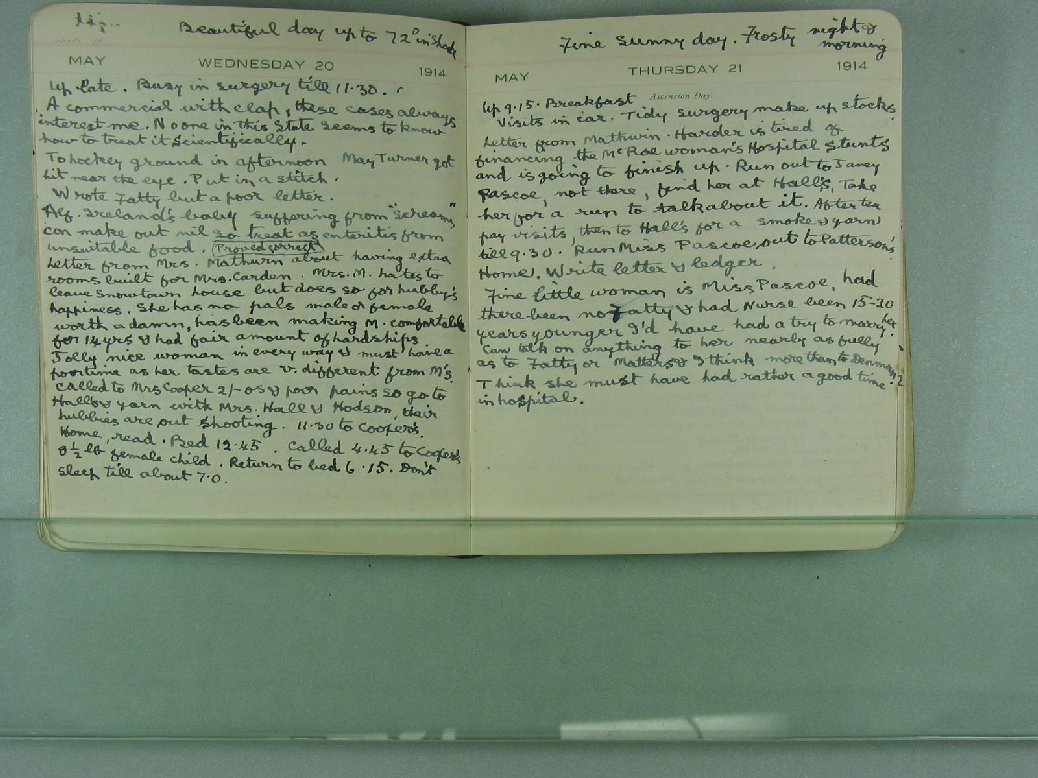 Beautiful day up to 72° in shade
MAY WEDNESDAY 20 1914
Up late. Busy in surgery till 11.30.
A commercial with clap, these cases always
interest me. No one in this State seems to know
how to treat it scientifically.
To hockey ground in afternoon May Turner got
hit near the eye. Put in a stitch.
Wrote Fatty but a poor letter.
Alf. Ireland's baby suffering from "screams",
can make out nil so treat as enteritis from
unsuitable food. (Proved correct)
Letter from Mrs. Mathurn about having extra
rooms built for Mrs. Carden. Mrs. M. hates to
leave Snowtown house but does so for hubby's
happiness. She has no pals male or female
worth a damn, has been making M. comfortable
for 14 yrs & had fair amount of hardships
Jolly nice woman in every way & must have a
poor time as her tastes are v. different from M's.
Called to Mrs Cooper 2/- os & poor pains so go to
Hall's & yarn with Mrs. Hall & Hodson, their
hubbies are out shooting. 11.30 to Cooper's.
Home, read. Bed 12.45. Called 4.45 to Coopers
8½ lb female child. Return to bed 6.15. Don't
sleep till about 7.0.
Fine sunny day. Frosty night &
morning
MAY THURSDAY 21 1914
Ascension Day.
Up 9.15. Breakfast
Visits in car. Tidy surgery make up stocks.
Letter from Mathwin. Harder is tired of
financing the McRoe woman's Hospital stunts
and is going to finish up. Run out to Janey
Pascoe, not there, find her at Hall's, Take
her for a run to talk about it. After tea
pay visits, then to Hall's for a smoke & yarn
till 9.30. Run Miss Pascoe out to Pattersons'
Home. Write letter & ledger.
Fine little woman is Miss Pascoe, had
there been no Fatty & had Nurse been 15-20
years younger I'd have had a try to marry her.
Can talk on anything to her nearly as fully
as to Fatty or Matters & I think more than to Denman?
Think she must have had rather a good time
in hospital.